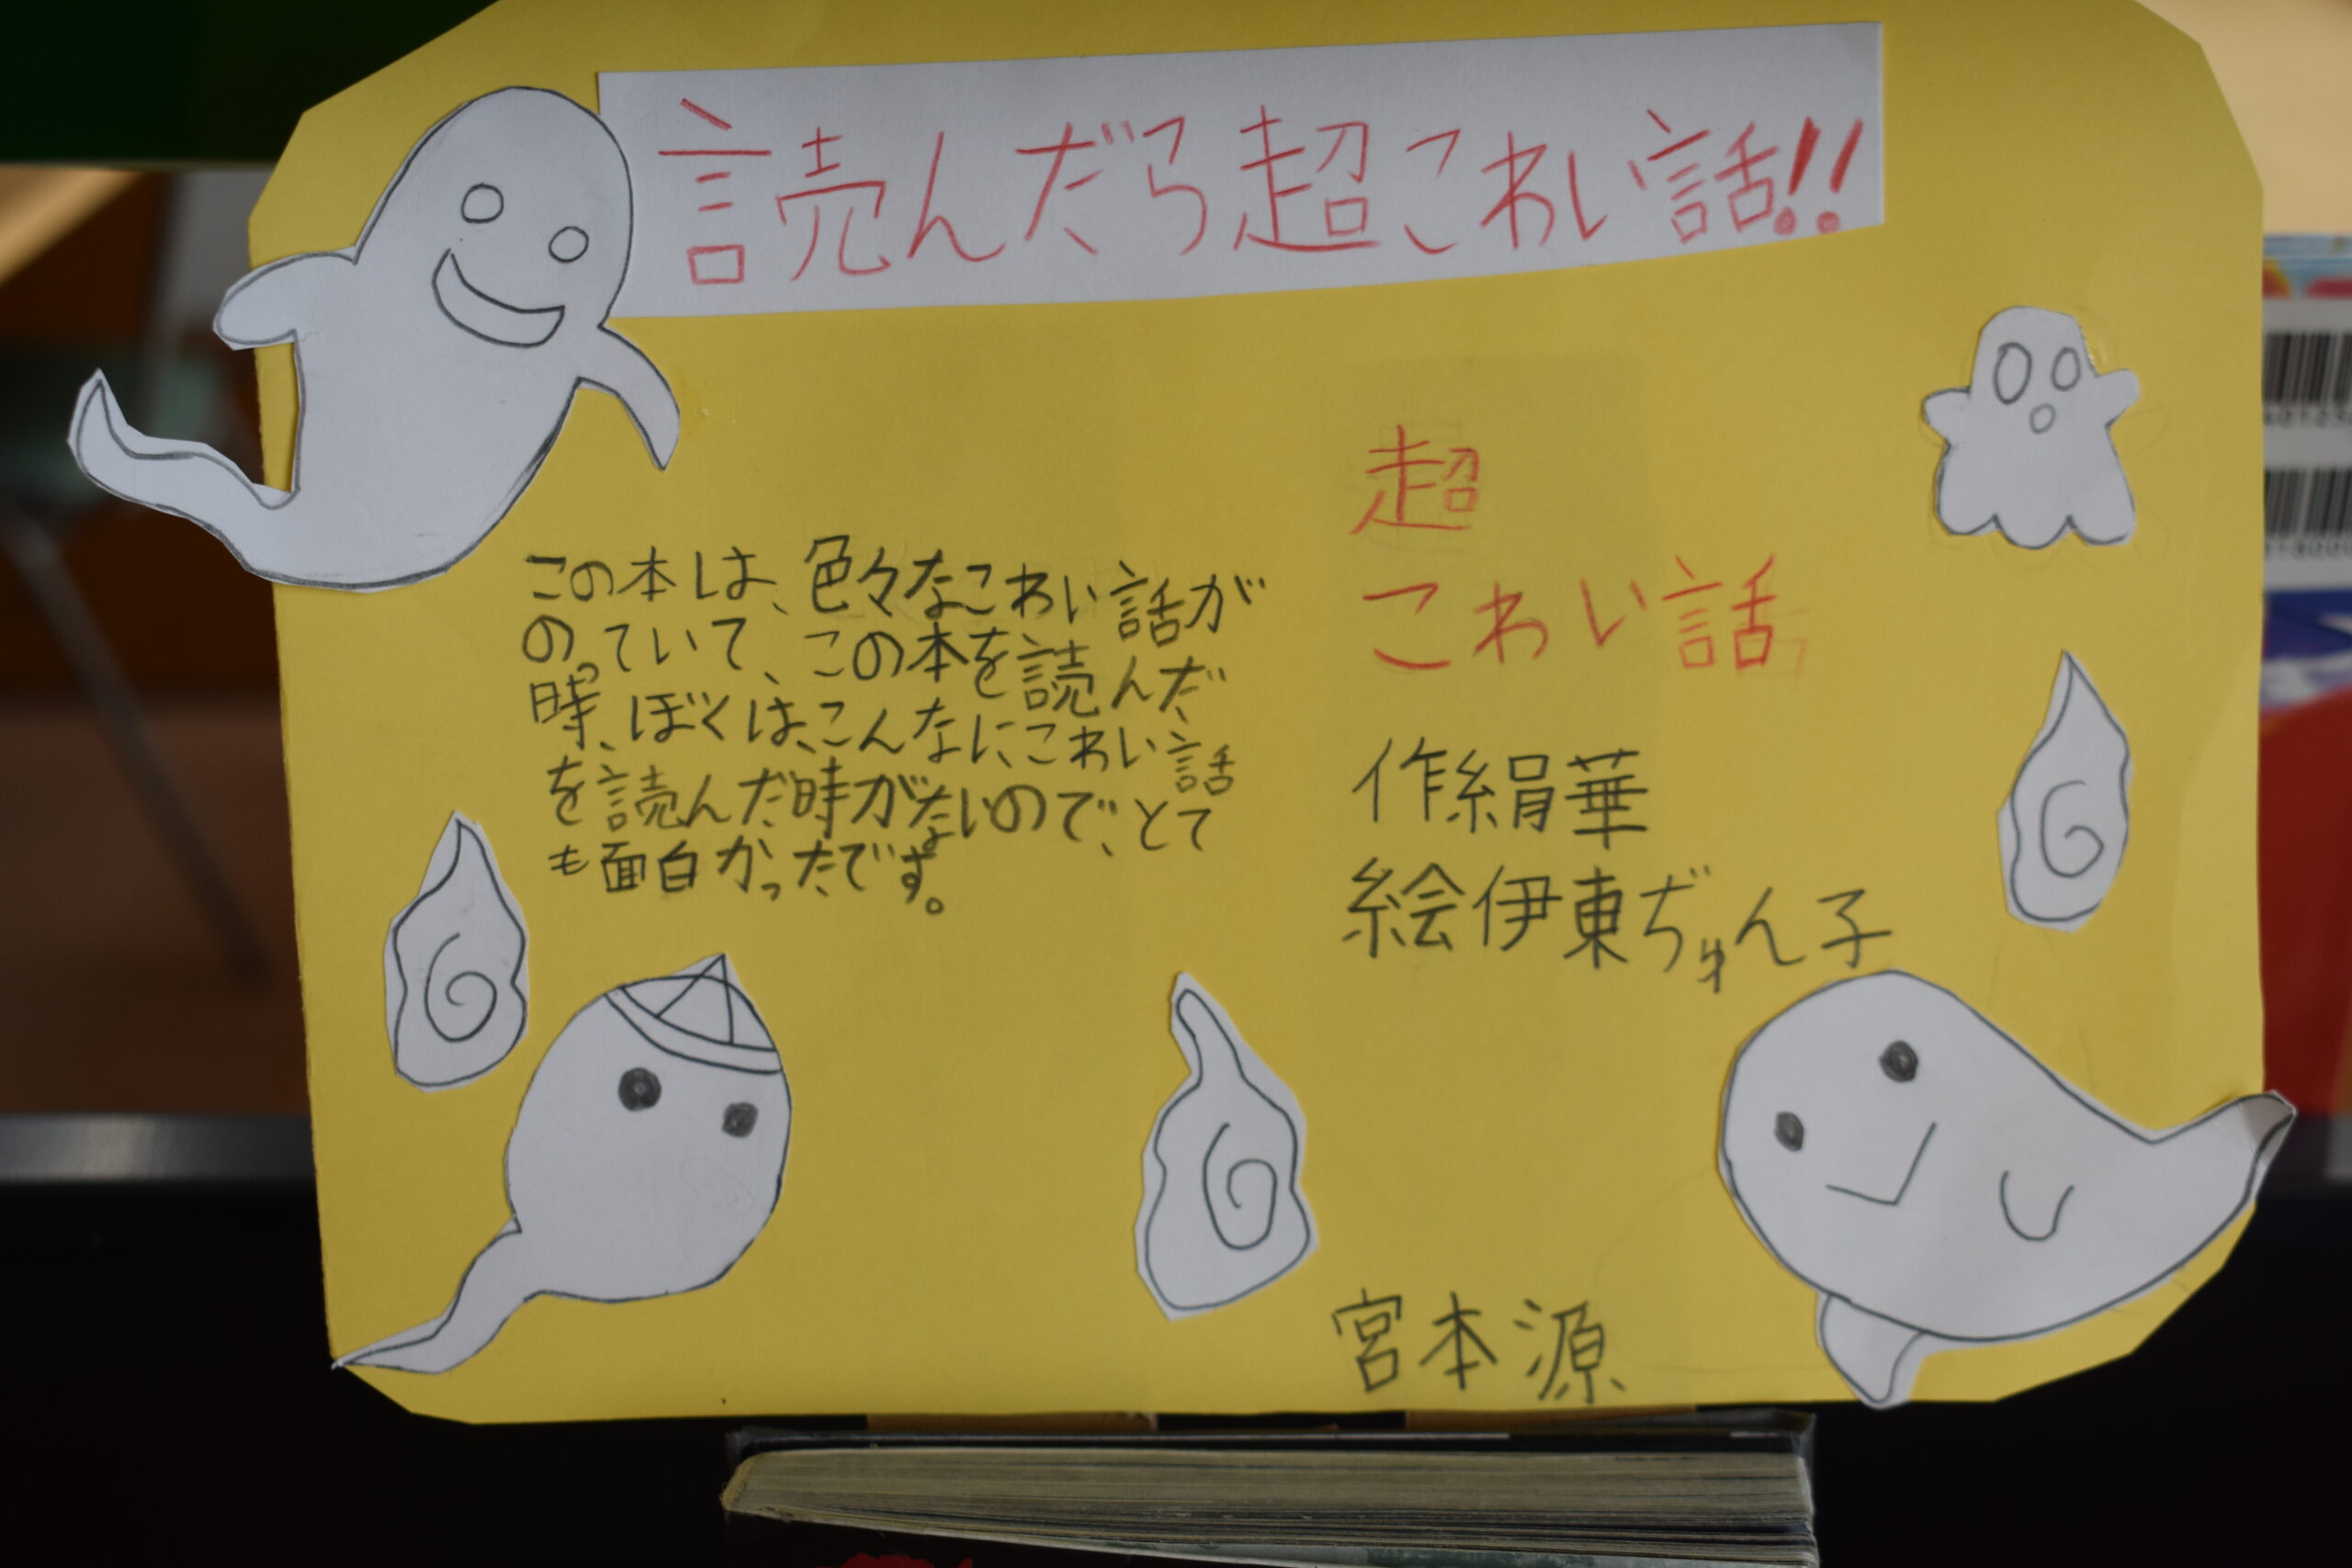 読んだら超こわい話!!
この本は、色々なこわい話が
のっていて、この本を読んだ
時、ぼくは、こんなにこわい話
を読んだ時がないので、とて
も面白かったです。
超
こわい話
作絹華
絵伊東ぢゅん子
宮本源